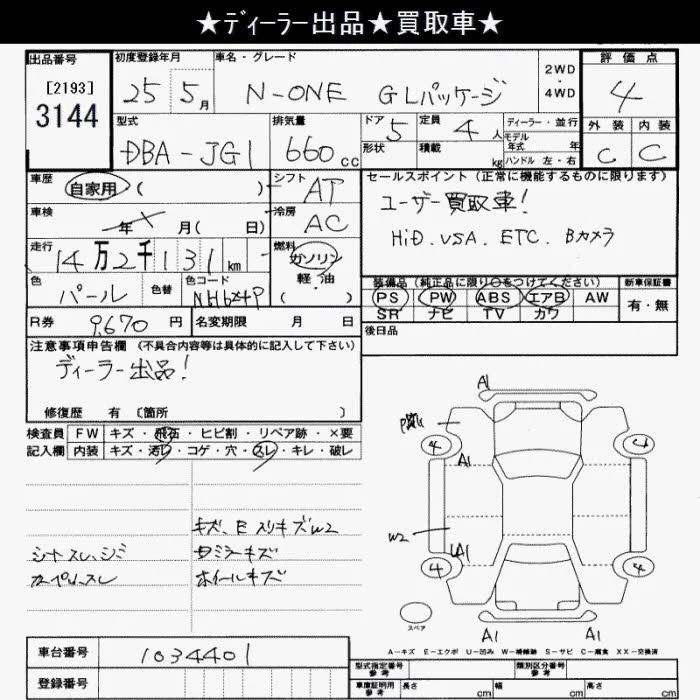 ★ディーラー出品★買取車★
出品番号 初度登録年月 車名・グレード 2WD・4WD 評価点
[2193]
3144
25 5月 N-ONE GLパッケージ 4
型式 排気量 ドア 定員 ディーラー・並行 外装 内装
DBA-JG1 660cc 5 4人 モデル年式 年 C C
形状 積載 kg ハンドル 左・右
車歴 自家用 ( ) シフト AT セールスポイント (正常に機能するものに限ります)
ユーザー買取車!
車検 年 月 (日) 冷房 AC
HiD. USA. ETC. Bカメラ
走行 14万2千131km 燃料 ガソリン 軽・油 ( )
色 パール 色替 色コード NH624P
装備品 (純正品に限り○をつけてください) 新車保証書
PS PW ABS エアB AW 有・無
SR ナビ TV カワ
R券 9,670円 名変期限 月 日
後日品
注意事項申告欄 (不具合内容等は具体的に記入して下さい)
ディーラー出品!
修復歴 有 〔箇所 〕
検査員 FW キズ・飛石・ヒビ割・リペア跡・×要
記入欄 内装 キズ・汚レ・コゲ・穴・スレ・キレ・破レ
キズ、E スリキズW2
シートスレ、シミ
ミラーキズ
スレ
ホイールキズ
A1
4
A1
W2
A1
4 4
スペア
A1 A1
A-キズ E-エクボ U-凹み W-補修跡 S-サビ C-腐食 XX-交換済
車台番号 1034401
登録番号
型式指定番号 参考 類別区分番号 参考
車庫証明用 参考 長さ cm 幅 cm 高さ cm